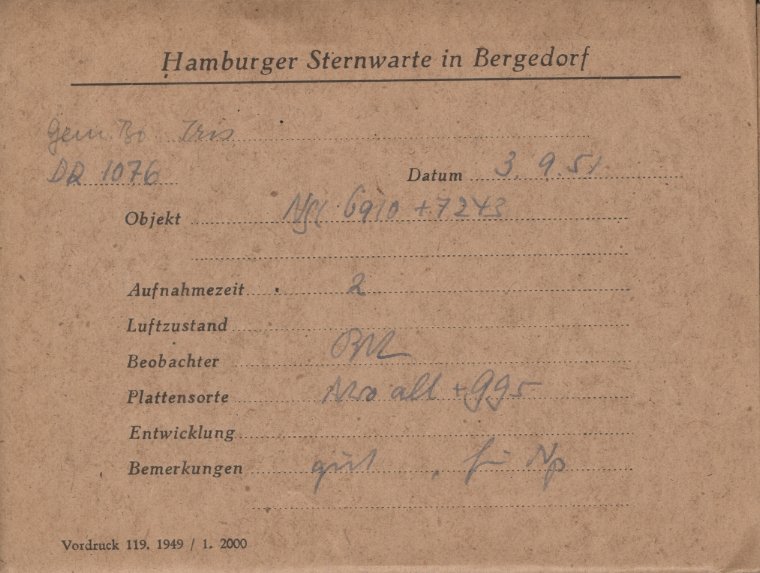 Hamburger Sternwarte in Bergedorf
Iris
DR 1076
Datum 3. 9. 51.
Objekt NGC 6910 + 7243
Aufnahmezeit 2
Luftzustand
Beobachter
Plattensorte alt + GG5
Entwicklung
Bemerkungen gut, für Np
Vordruck 119. 1949 / 1. 2000